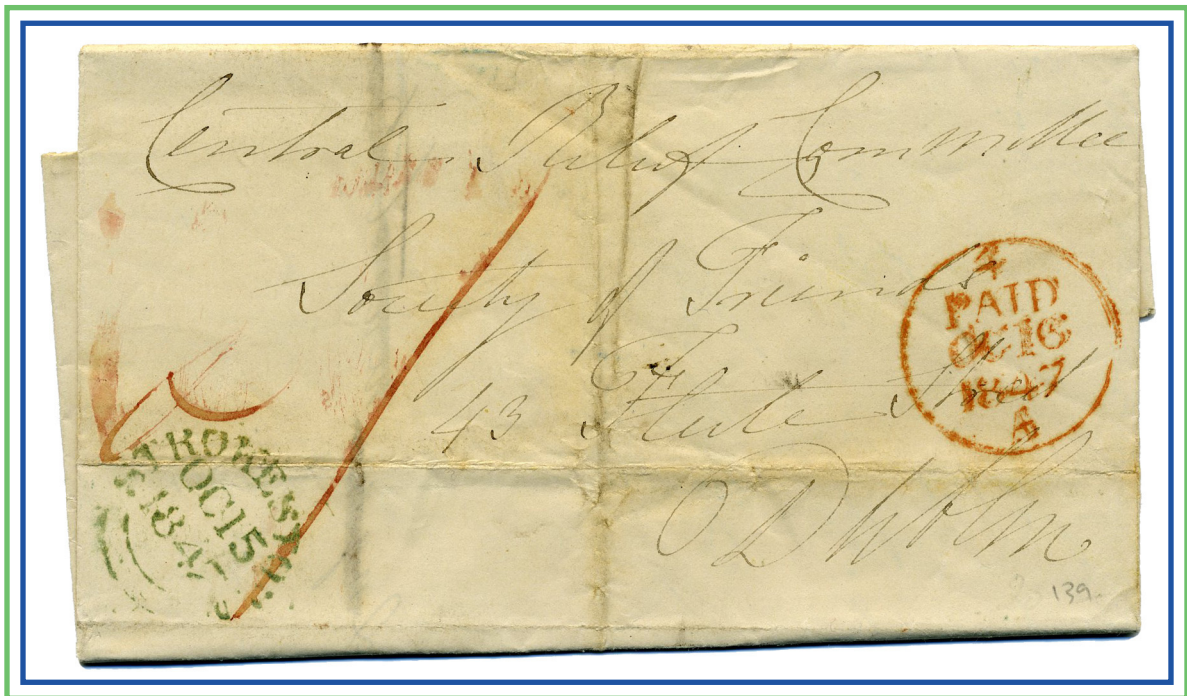 Central Relief Committee
Society of Friends
43 Fleete Street
Dublin
4
PAID
OC 16
1847
A
OC 15
1847
139